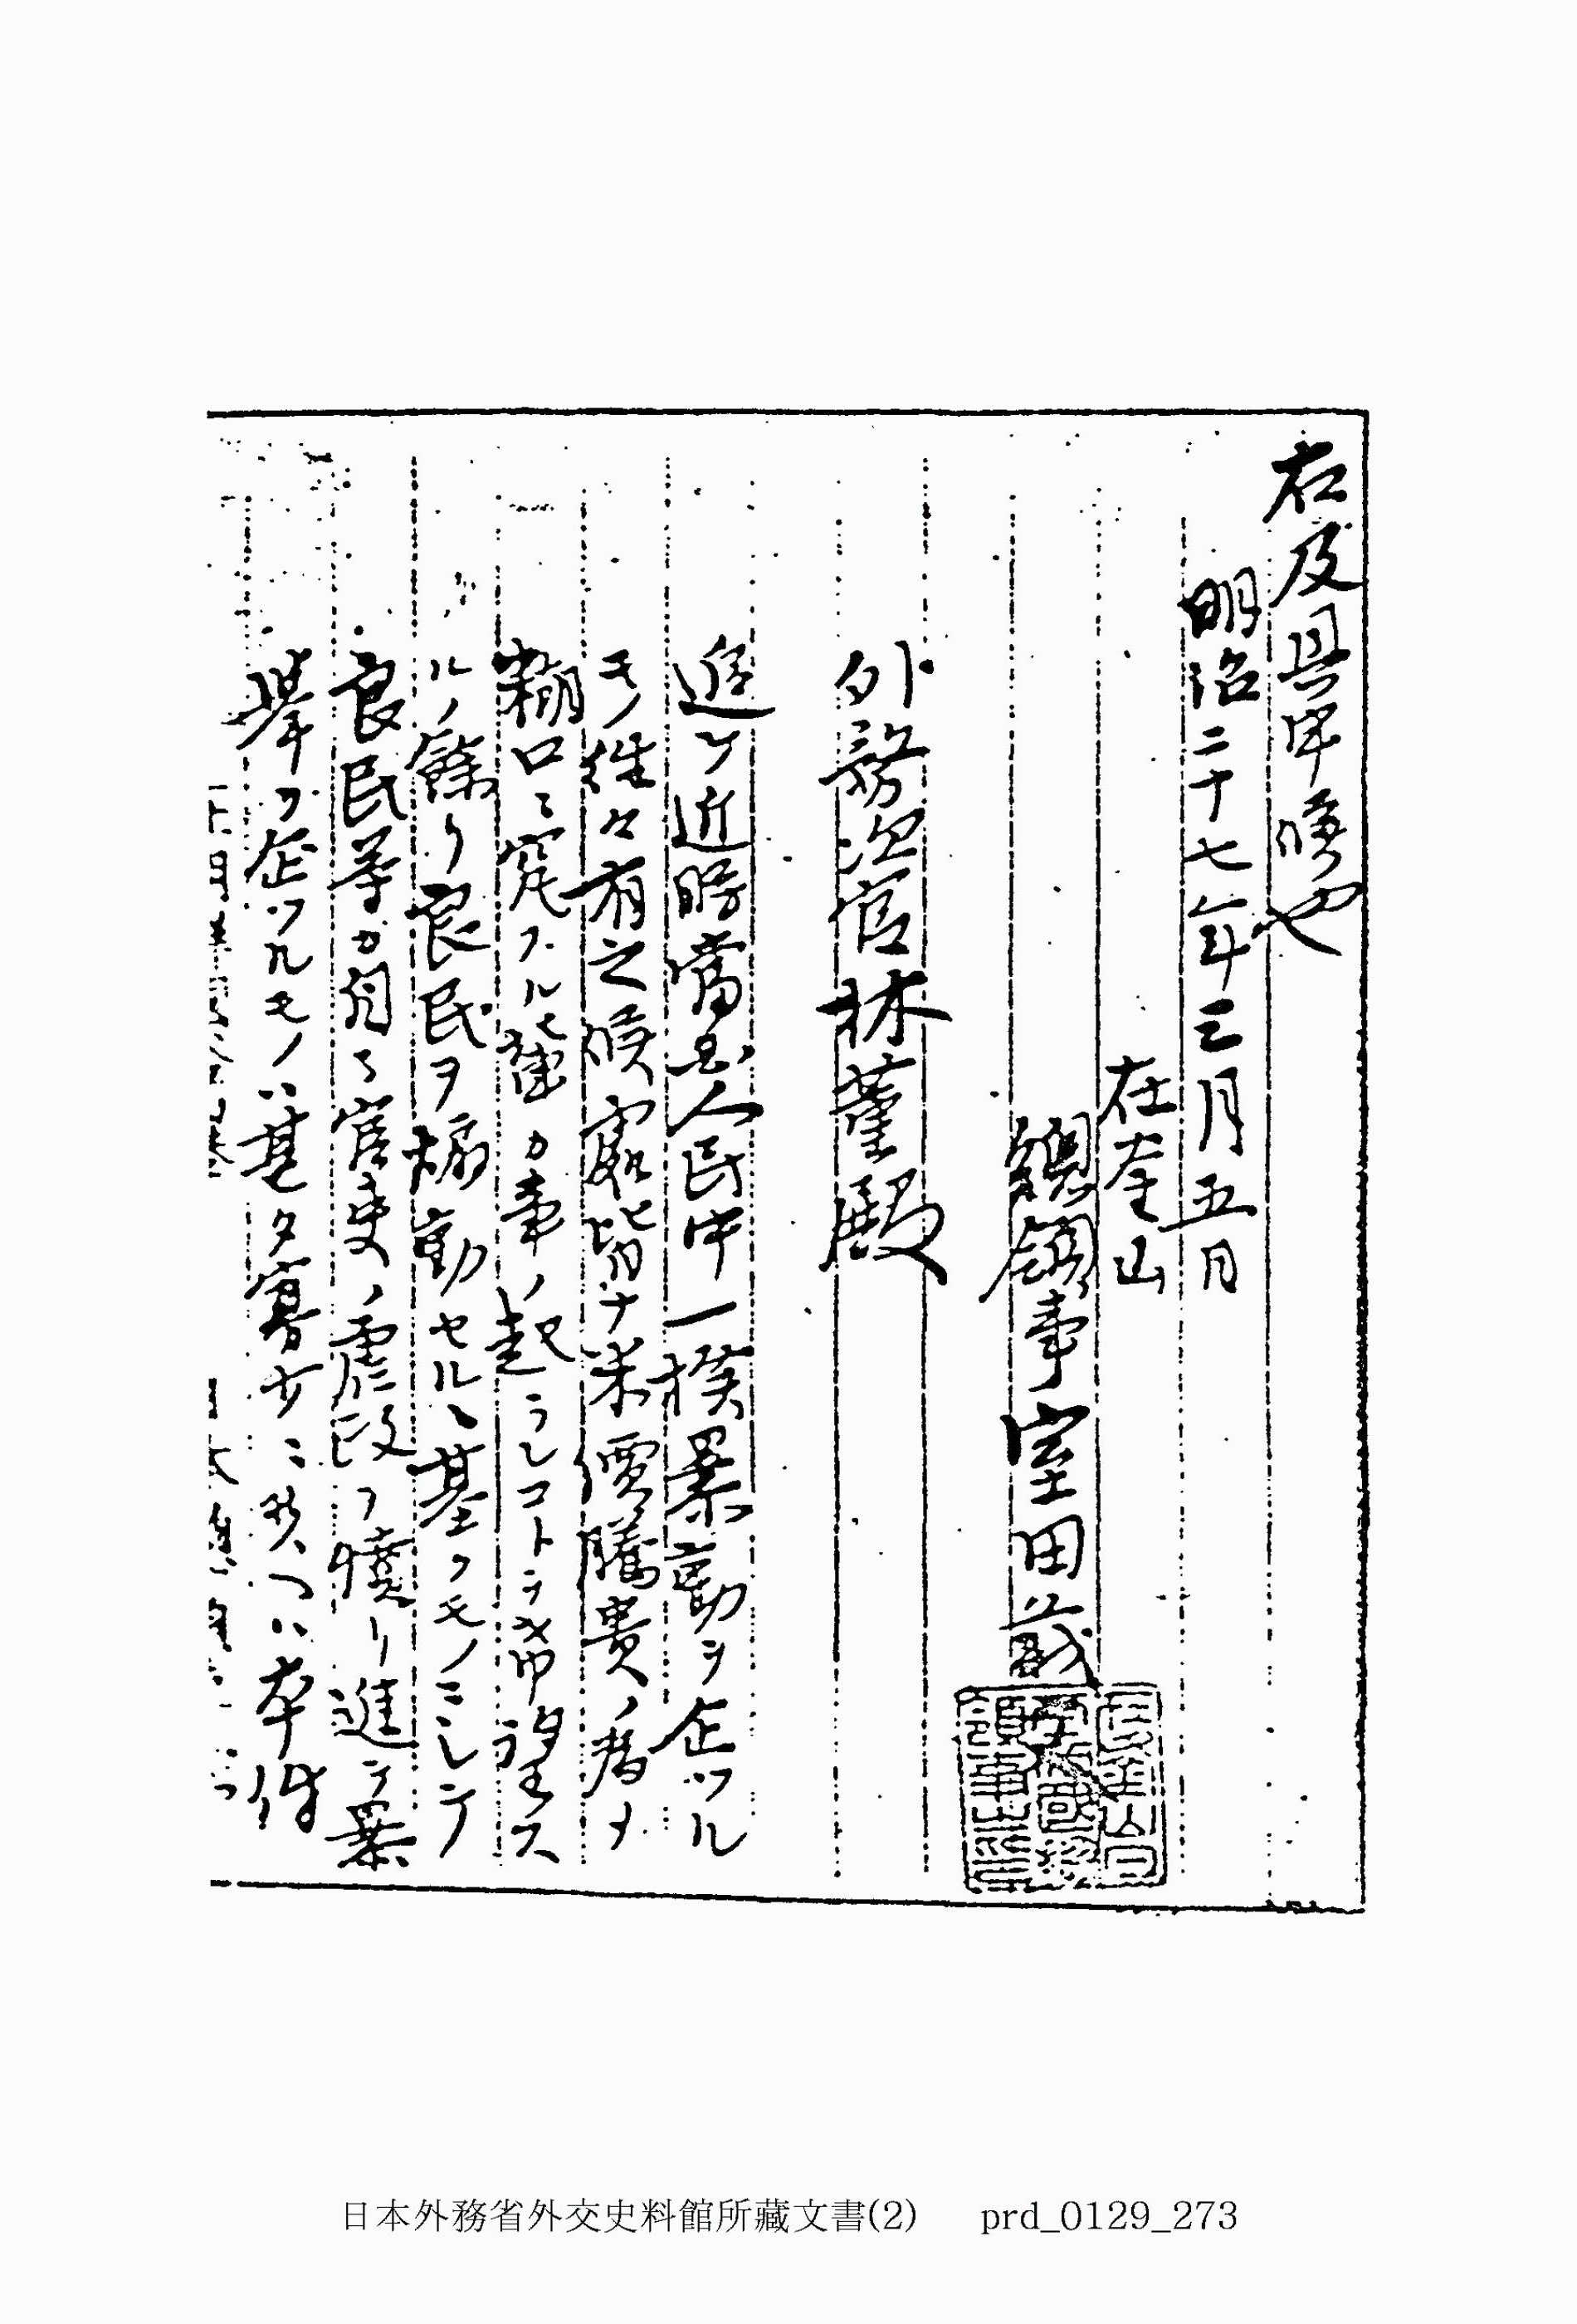 右及具申候也
明治二十七年三月五日
在釜山
總領事室田義文
外務次官林董殿
追テ近時當國人民中一揆暴動ヲ企ツル
モノ往々有之候處皆ナ米價騰貴ノ爲メ
糊口ニ窮スル輩カ事ノ起ランコトヲ希望ス
ルノ餘リ良民ヲ煽動セルニ基クモノニシテ
良民等カ自ラ官吏ノ虐政ヲ憤リ進テ暴
擧ヲ企ツルモノハ甚タ寡少ニ候ヘハ本件
日本外務省外交史料館所藏文書(2) prd_0129_273